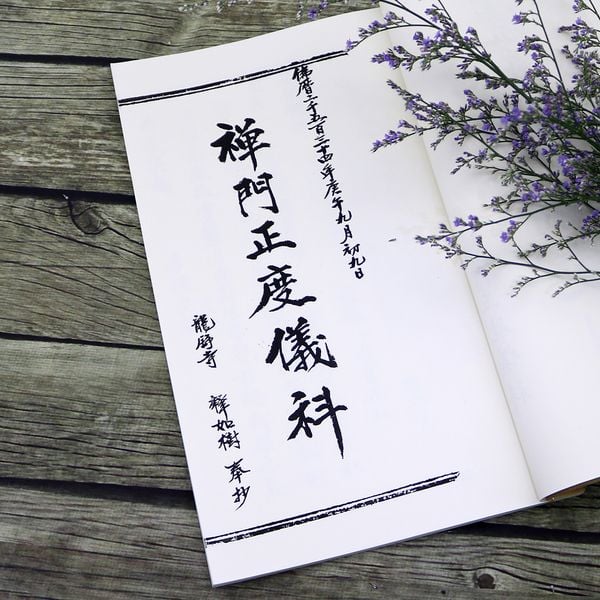 佛曆二千五百三十四年庚午九月初九日
禅門正度儀科
釋如樹 奉抄